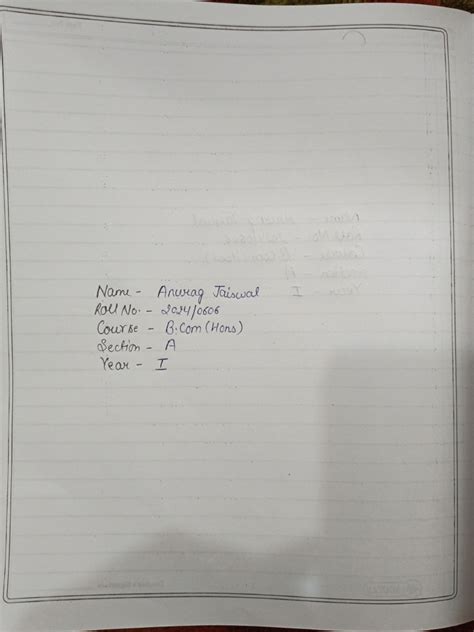 Name - Anurag Jaiswal
Roll No. - 2024/0606
Course - B.Com (Hons)
Section - A
Year - I